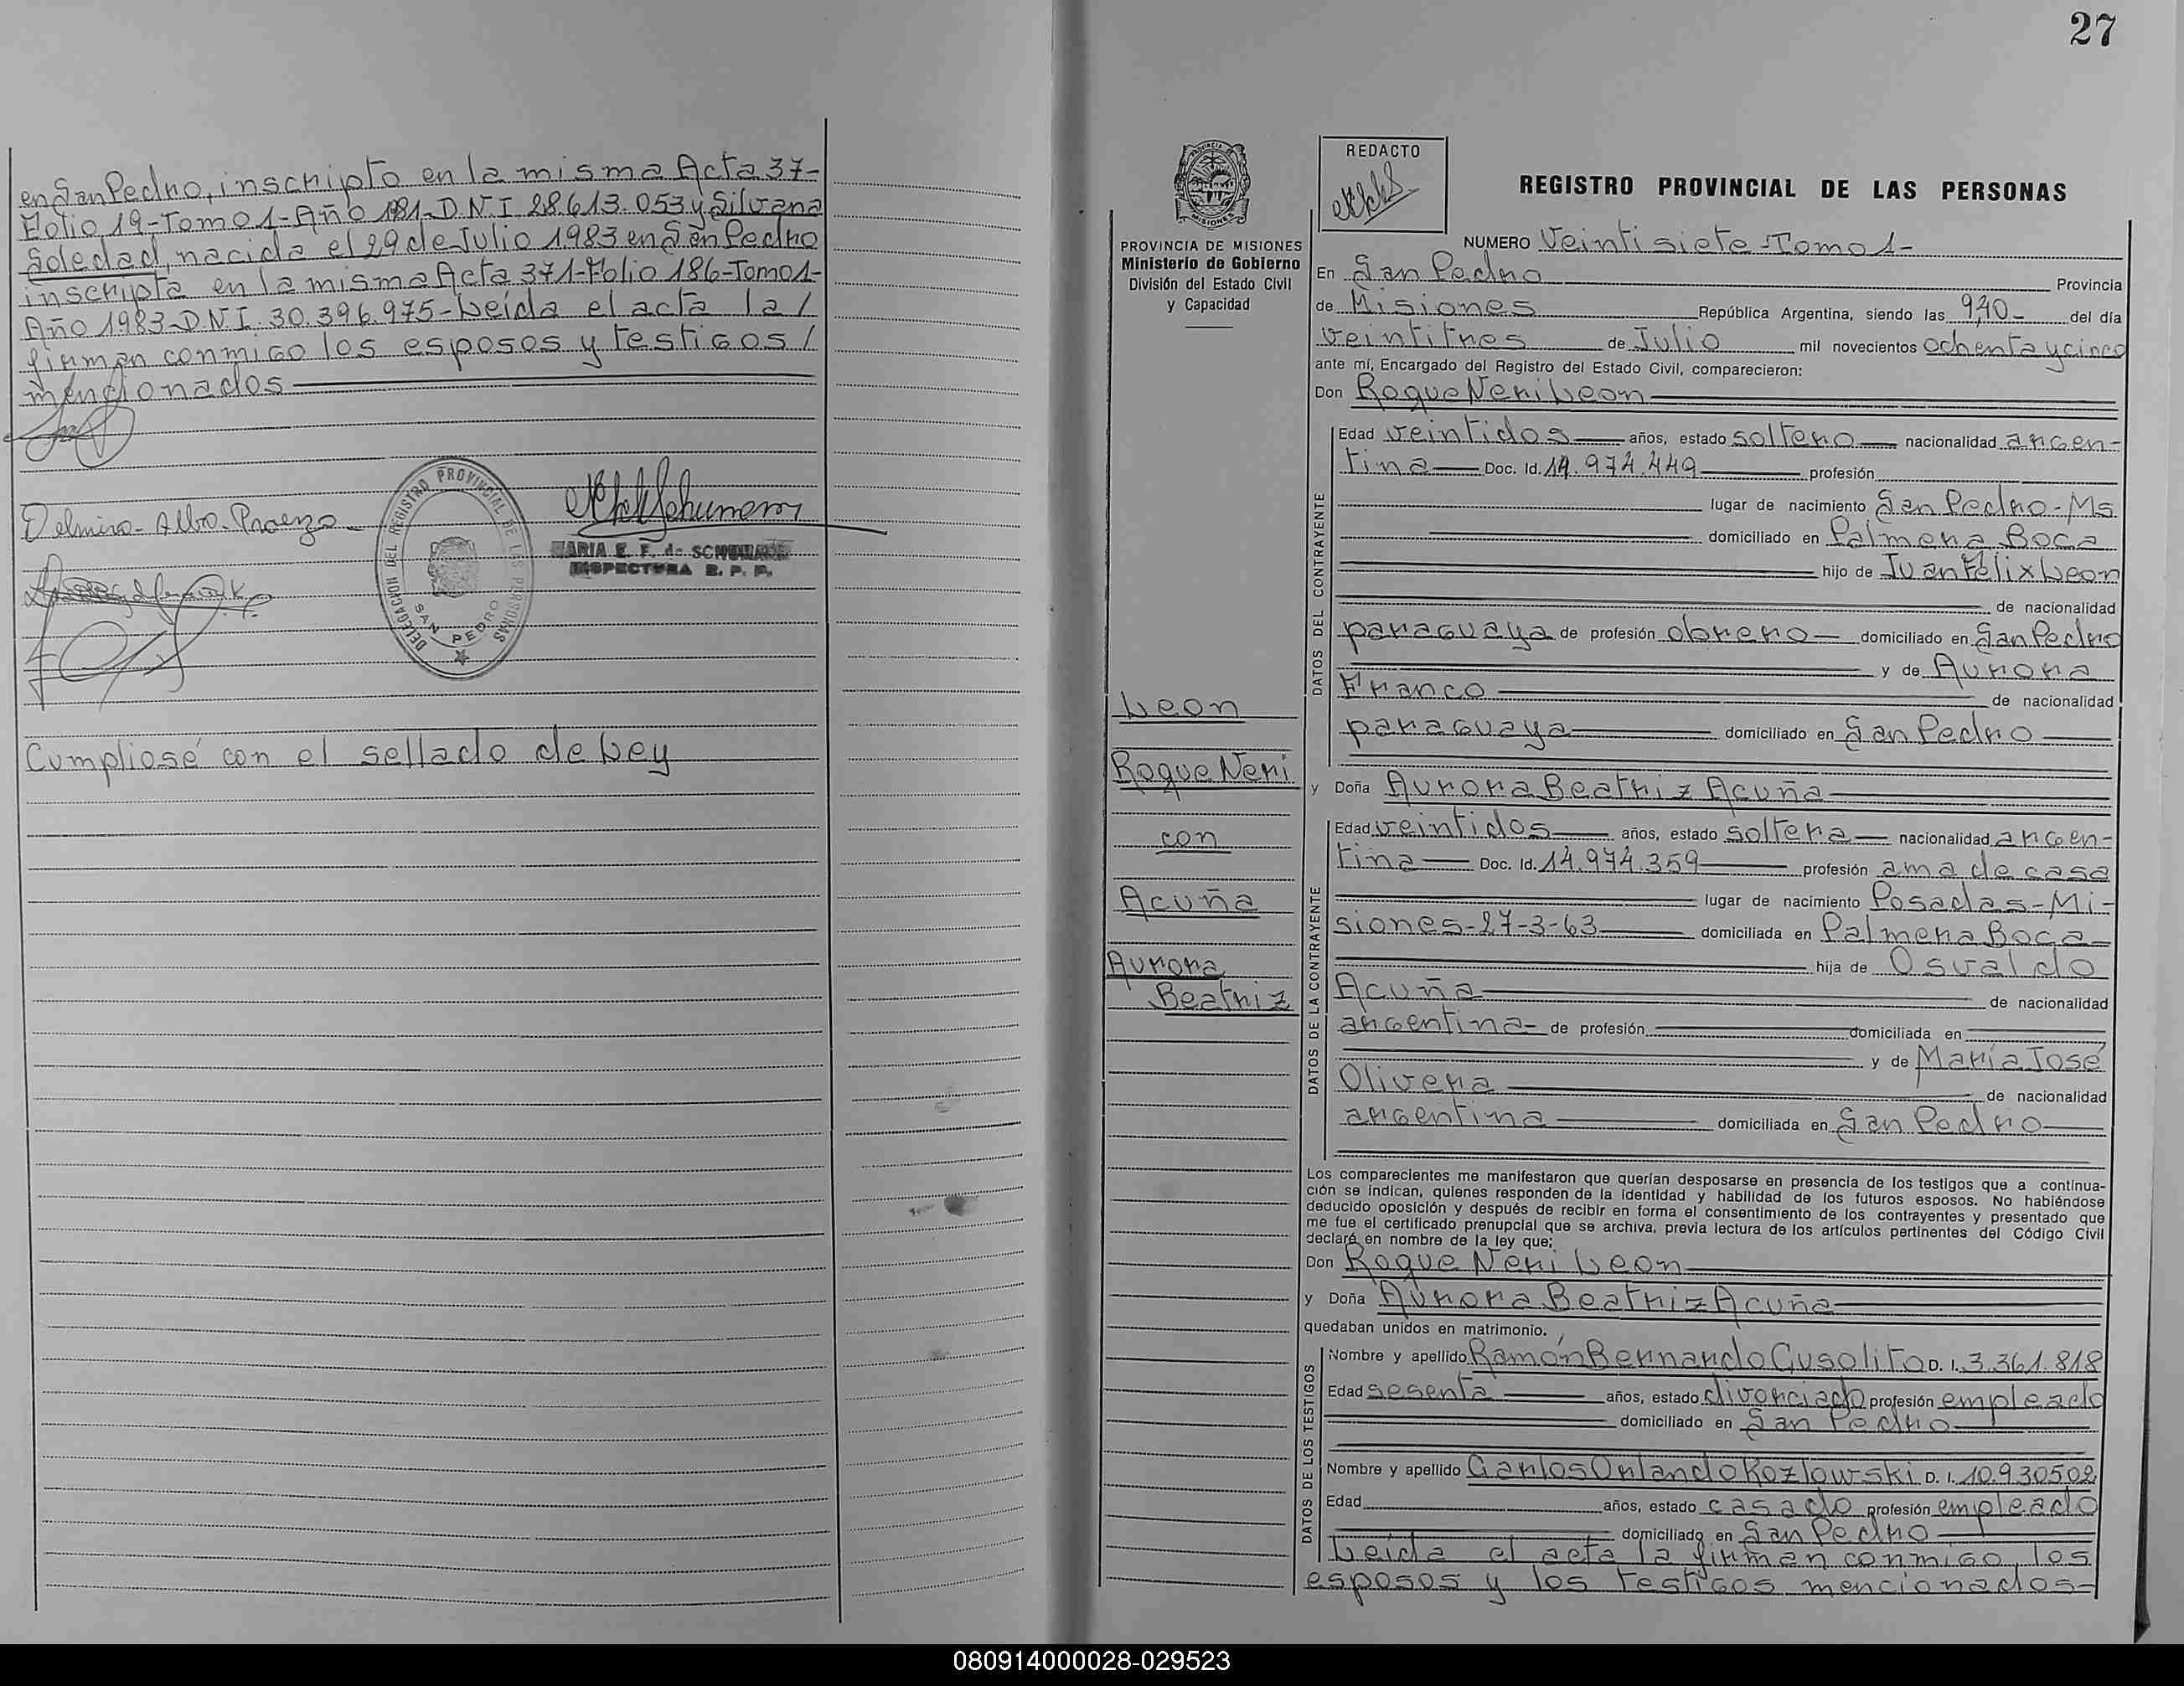 en San Pedro, inscripto en la misma Acta 37-
Folio 19-Tomo 1-Año 1981-D.N.I. 28.613.053 y Silvana
Soledad, nacida el 29 de Julio 1983 en San Pedro
inscripta en la misma Acta 371-Folio 186-Tomo 1-
Año 1983-D.N.I. 30.396.975-Leída el acta la /
firman conmigo los esposos y testigos /
mencionados
Delmiro-Albo-Proenza
DELEGACION DEL REGISTRO PROVINCIAL DE LAS PERSONAS
SAN PEDRO
MARIA E. F. de
INSPECTORA R. P. P.
Cumpliosé con el sellado de Ley
27
PROVINCIA DE MISIONES
Ministerio de Gobierno
División del Estado Civil
y Capacidad
Leon
Roque Neri
con
Acuña
Aurora
Beatriz
REDACTO
REGISTRO PROVINCIAL DE LAS PERSONAS
NUMERO Veintisiete-Tomo 1-
En San Pedro Provincia
de Misiones República Argentina, siendo las 9,40- del día
veintitres de Julio mil novecientos ochenta y cinco
ante mí, Encargado del Registro del Estado Civil, comparecieron:
Don Roque Neri Leon
DATOS DEL CONTRAYENTE
Edad veintidos años, estado soltero nacionalidad argen-
tina Doc. Id. 14.974.449 profesión
lugar de nacimiento San Pedro-Ms.
domiciliado en Palmera Boca
hijo de Juan Félix Leon
de nacionalidad
paraguaya de profesión obrero domiciliado en San Pedro
y de Aurora
Franco de nacionalidad
paraguaya domiciliado en San Pedro
y Doña Aurora Beatriz Acuña
DATOS DE LA CONTRAYENTE
Edad veintidos años, estado soltera nacionalidad argen-
tina Doc. Id. 14.974.359 profesión ama de casa
lugar de nacimiento Posadas-Mi-
siones-27-3-63 domiciliada en Palmera Boca
hija de Osvaldo
Acuña de nacionalidad
argentina de profesión domiciliada en
y de María José
Olivera de nacionalidad
argentina domiciliada en San Pedro
Los comparecientes me manifestaron que querían desposarse en presencia de los testigos que a continua-
ción se indican, quienes responden de la identidad y habilidad de los futuros esposos. No habiéndose
deducido oposición y después de recibir en forma el consentimiento de los contrayentes y presentado que
me fue el certificado prenupcial que se archiva, previa lectura de los artículos pertinentes del Código Civil
declaré en nombre de la ley que;
Don Roque Neri Leon
y Doña Aurora Beatriz Acuña
quedaban unidos en matrimonio.
DATOS DE LOS TESTIGOS
Nombre y apellido Ramón Bernardo Cusolito D. I. 3.361.818
Edad sesenta años, estado divorciado profesión empleado
domiciliado en San Pedro
Nombre y apellido Carlos Orlando Kozlowski D. I. 10.930502
Edad años, estado casado profesión empleado
domiciliado en San Pedro
Leída el acta la firman conmigo los
esposos y los testigos mencionados-
080914000028-029523